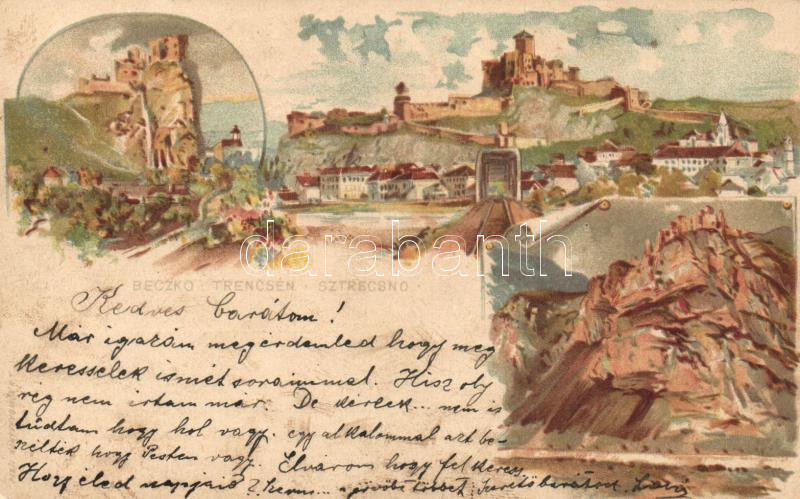 BECZKÓ · TRENCSÉN · SZTRECSNO
darabanth.com
Kedves barátom!
Már igazán megérdemled hogy meg
keresselek ismét soraimmal. Hisz oly
rég nem irtam már. De kérlek... nem is
tudtam hogy hol vagy. egy alkalommal azt be-
szélték hogy Pesten vagy. Elvárom hogy felkeress
Hogy éled napjaid? Szerető barátod